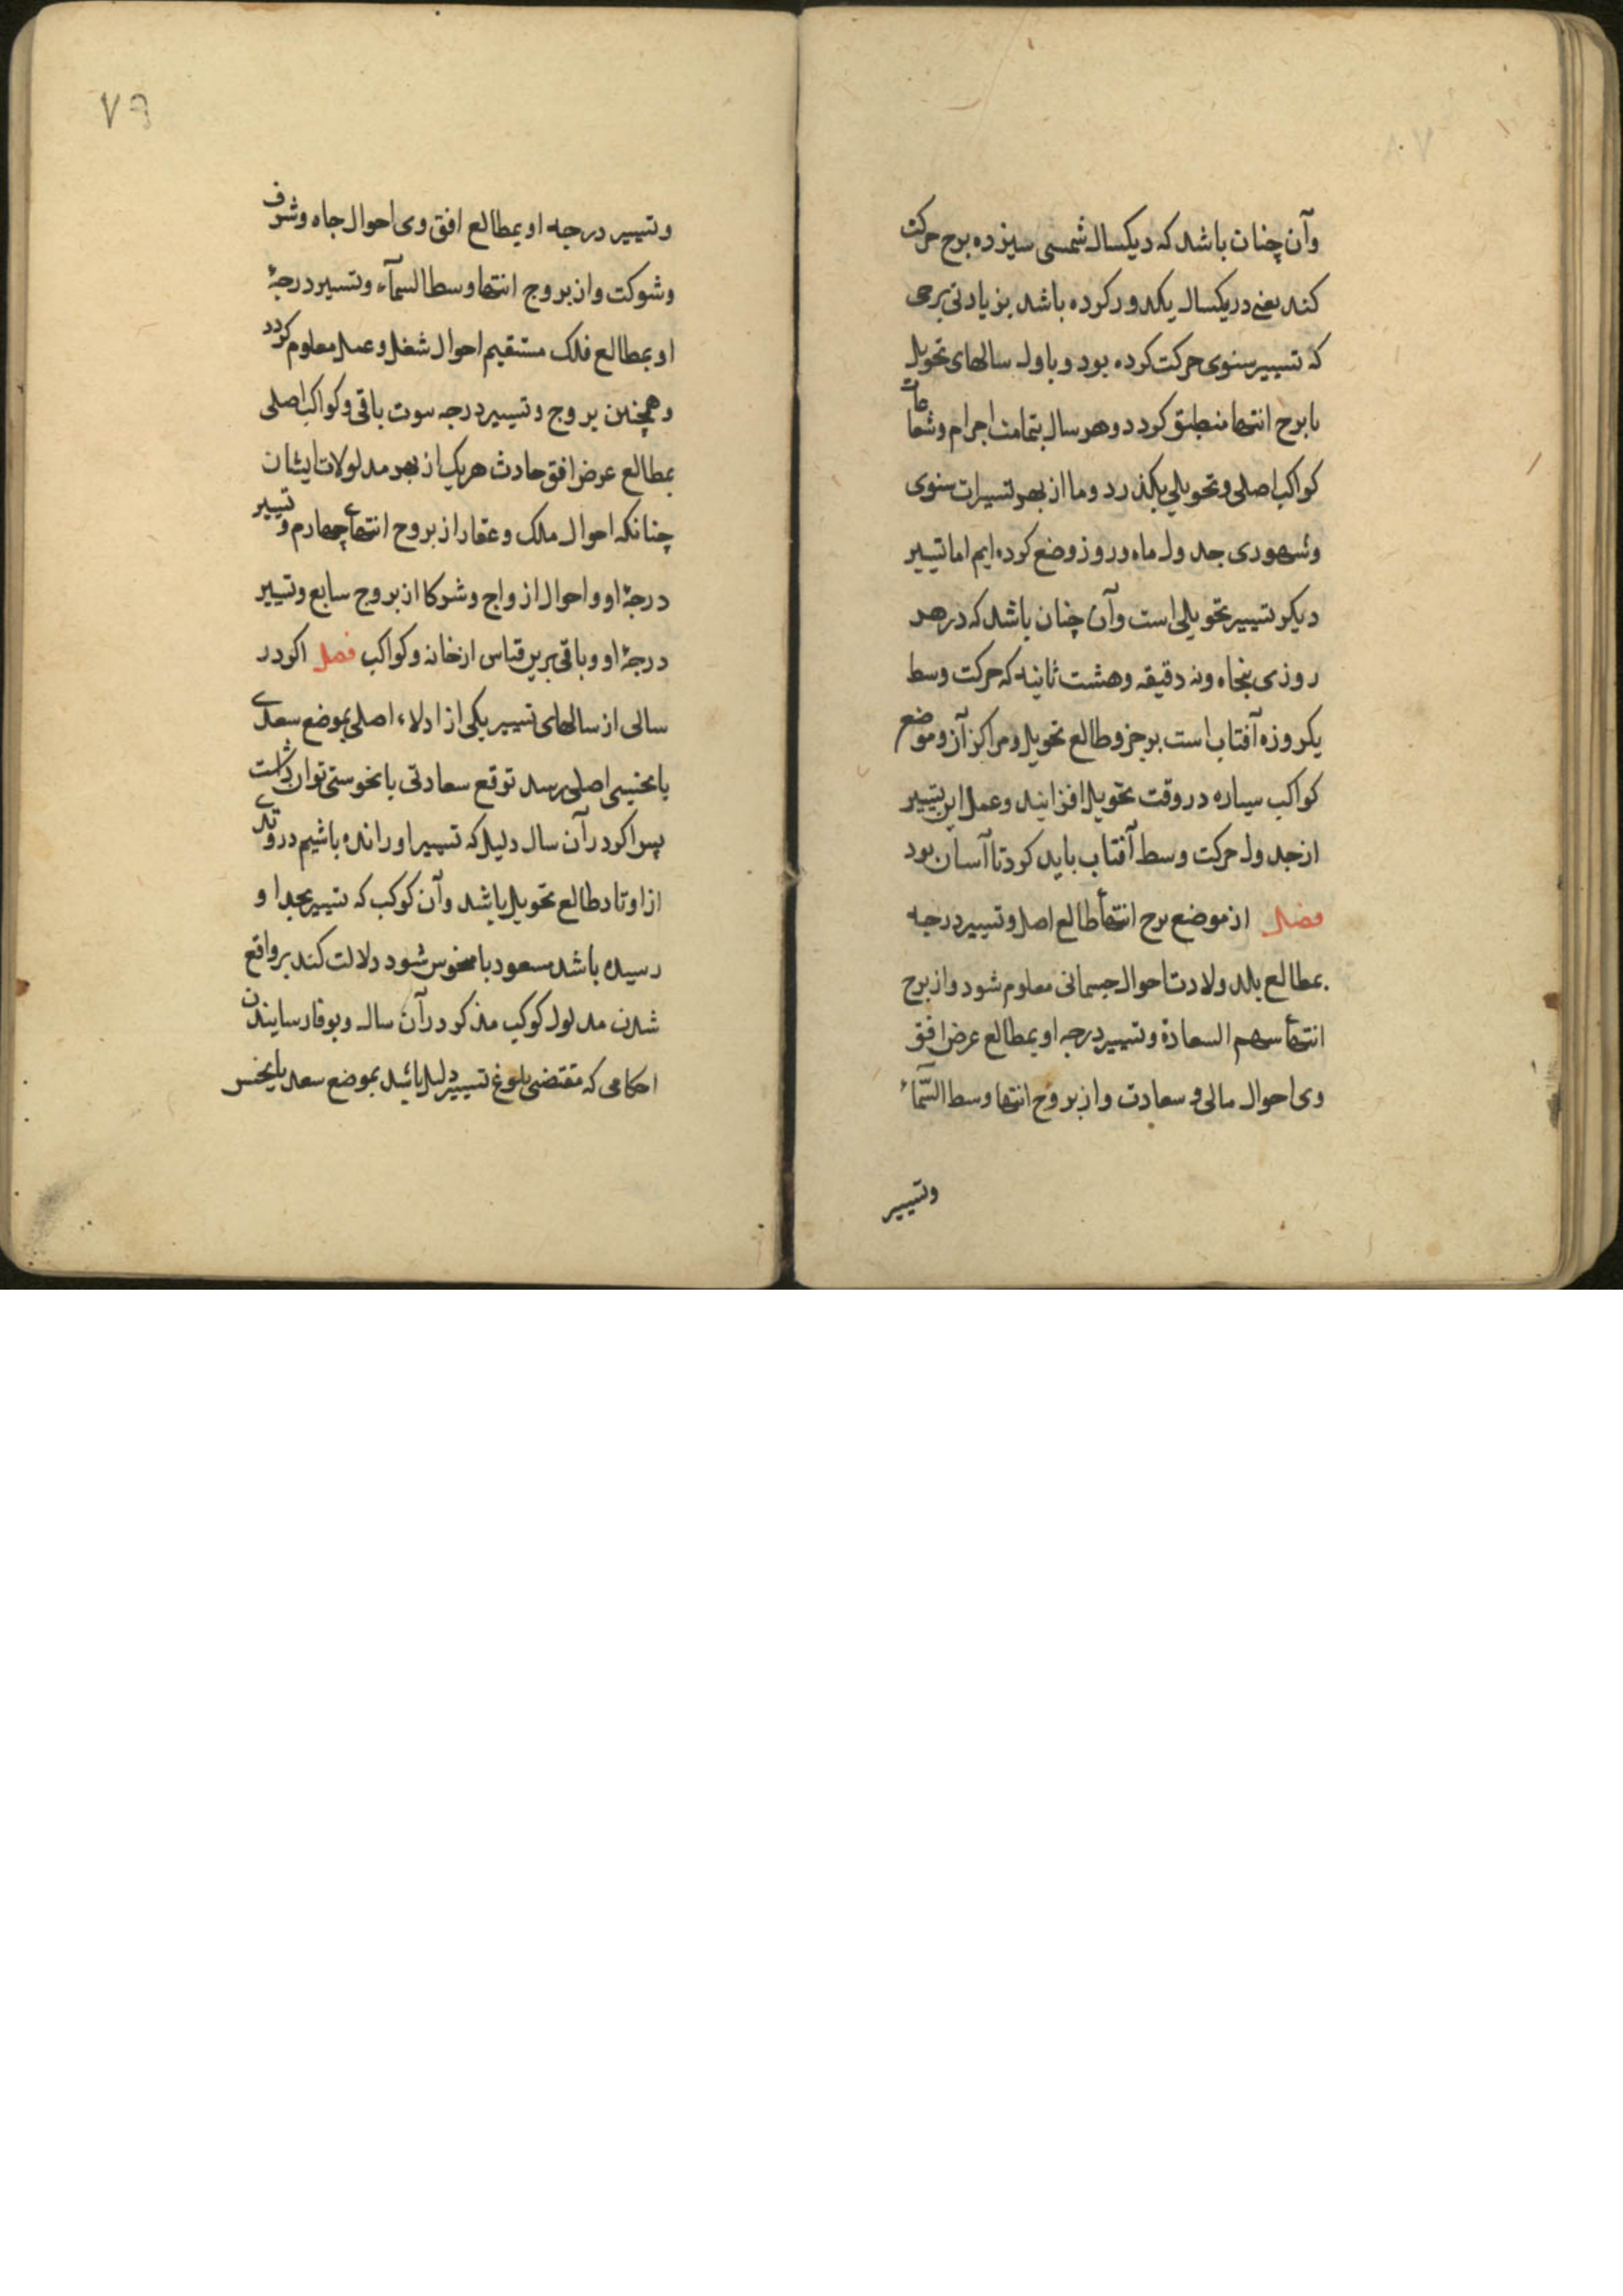 وآن چنان باشد که دیکسال شمسی سیزده برج حرکت
کند یعنی در یکسال یکدور کرده باشد بزیادتی برجی
که تسییر سنوی حرکت کرده بود و باول سالهای تحویل
با برج انتها منطبق کردد و هر سال بتمامت اجرام وشعاعات
کواکب اصلی و تحویلی بکذرد وما از بهر تسییرات سنوی
وشهوری جدول ماه و روز وضع کرده ایم اما تسییر
دیکر تسییر تحویلی است وآن چنان باشد که در هر
روزی پنجاه ونه دقیقه وهشت ثانیه که حرکت وسط
یکروزه آفتاب است برجزو طالع تحویل و مراکز آن و موضع
کواکب سیاره در وقت تحویل افزایند وعمل این تسییر
از جدول حرکت وسط آفتاب باید کرد تا آسان بود
فصل از موضع برج انتهأ طالع اصل و تسییر درجه
بمطالع بلد ولادت احوال جسمانی معلوم شود واز برج
انتهأ سهم السعادة وتسییر درجه او بمطالع عرض افق
وی احوال مالی و سعادت واز بروج انتها وسط السّمآء
وتسییر
٧٩
وتسییر درجه او بمطالع افق وی احوال جاه وشرف
وشوکت واز بروج انتها وسط السمآء وتسییر درجهٔ
او بمطالع فلک مستقیم احوال شغل و عمل معلوم کردد
وهمچنین بروج و تسییر درجه بیوت باقی و کواکب اصلی
بمطالع عرض افق حادث هریک از بهر مدلولات ایشان
چنانکه احوال ملک وعقار از بروج انتهای چهارم و تسییر
درجهٔ او و احوال ازواج وشرکا از بروج سابع وتسییر
درجهٔ او وباقی برین قیاس از خانه وکواکب فصل اکر در
سالی از سالهای تسییر یکی از ادلاء اصلی بموضع سعدی
یا نحسی اصلی رسد توقع سعادتی یا نحوستی توان داشت
پس اکر در آن سال دلیل که تسییر او رانده باشیم در وتدی
از اوتاد طالع تحویل باشد وآن کوکب که تسییر بجدا و
رسیده باشد مسعود یا منحوس شود دلالت کند بر واقع
شدن مدلول کوکب مذکور در آن سال وبوفا رسانیدن
احکامی که مقتضی بلوغ تسییر دلیل باشد بموضع سعد یا نحس